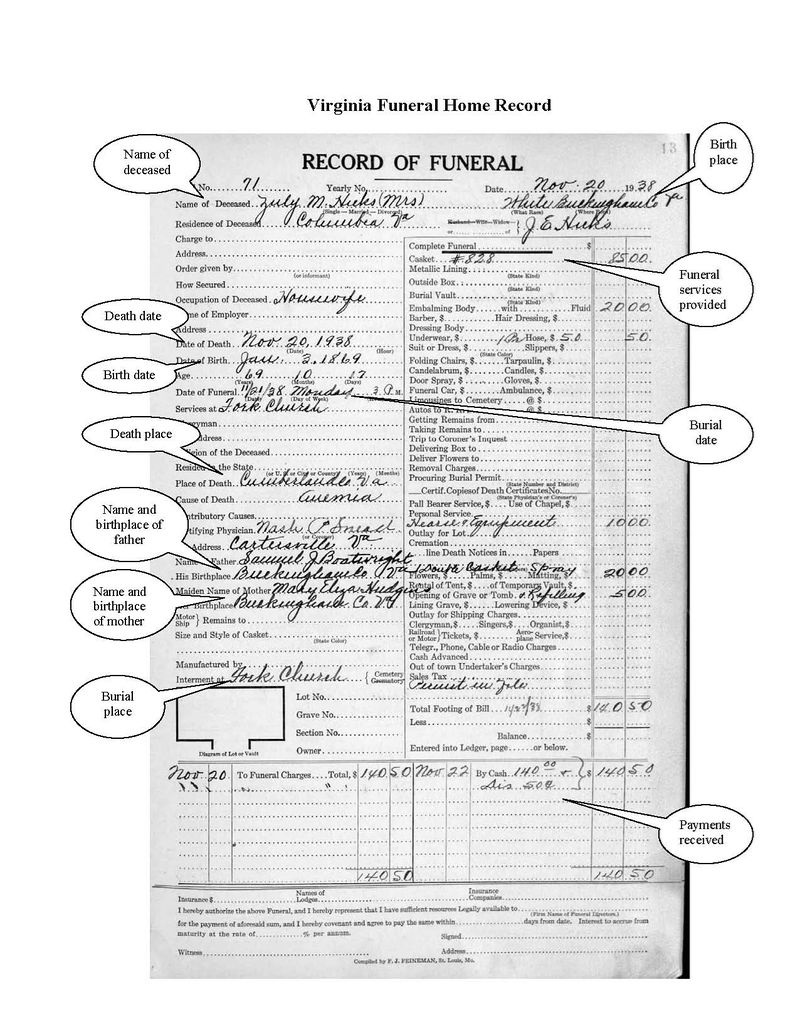 Virginia Funeral Home Record
Name of deceased
Birth place
13
RECORD OF FUNERAL
No. 71 Yearly No. Date Nov. 20 1938
Name of Deceased July M. Hicks (Mrs) White Buckingham Co Va
(Single — Married — Divorced) (What Race) (Where Born)
Residence of Deceased Columbia Va Husband—Wife—Widow or of J. E. Hicks
Charge to
Address
Order given by
(or informant)
How Secured
Occupation of Deceased Housewife
Name of Employer
Address
Death date
Date of Death Nov. 20, 1938
(Date) (Hour)
Birth date
Date of Birth Jan. 3, 1869
Age 69 10 17
(Years) (Months) (Days)
Date of Funeral 11/21/38 Monday 3 P. M.
(Date) (Day of Week)
Services at Fork Church
Clergyman
Address
Religion of the Deceased
Death place
Resided in the State
(or U. S. or City or County) (Years) (Months)
Place of Death Cumberland Co. Va
Cause of Death Anemia
Contributory Causes
Certifying Physician Nash P. Snead
(or Coroner)
Address Cartersville Va
Name and birthplace of father
Name of Father Samuel J Boatwright
His Birthplace Buckingham Co Va
Name and birthplace of mother
Maiden Name of Mother Mary Eliza Hudgins
Her Birthplace Buckingham Co. Va
Motor Ship } Remains to
Size and Style of Casket
(State Color)
Manufactured by
Burial place
Interment at Fork Church { Cemetery Crematory
Lot No.
Grave No.
Section No.
Owner
Diagram of Lot or Vault
Complete Funeral $
Casket #828 85 00
Funeral services provided
Metallic Lining
(State Kind)
Outside Box
(State Kind)
Burial Vault
(State Kind)
Embalming Body with Fluid 20 00
Barber, $ Hair Dressing, $
Dressing Body
Underwear, $ 1 Pr Hose, $ 50 50
Suit or Dress, $ Slippers, $
(State Color)
Folding Chairs, $ Tarpaulin, $
Candelabrum, $ Candles, $
Door Spray, $ Gloves, $
Funeral Car, $ Ambulance, $
Limousines to Cemetery @ $
Autos to R. R. @ $
Burial date
Getting Remains from
Taking Remains to
Trip to Coroner's Inquest
Delivering Box to
Deliver Flowers to
Removal Charges
Procuring Burial Permit
(State Number and District)
Certif. Copies of Death Certificates No.
(State Physician's or Coroner's)
Pall Bearer Service, $ Use of Chapel, $
Personal Service
Hearse & Equipment 10 00
Outlay for Lot
Cremation
line Death Notices in Papers
Casket Spray
Flowers, $ Palms, $ Matting, $ 20 00
Rental of Tent, $ of Temporary Vault, $
Opening of Grave or Tomb & Refilling 5 00
Lining Grave, $ Lowering Device, $
Outlay for Shipping Charges
Clergyman, $ Singers, $ Organist, $
Railroad or Motor } Tickets, $ Aeroplane Service, $
Telegr., Phone, Cable or Radio Charges
Cash Advanced
Out of town Undertaker's Charges
Sales Tax
Permit in File
Total Footing of Bill $ 140 50
Less $
Balance $
Entered into Ledger, page or below.
Nov. 20 To Funeral Charges Total, $ 140 50 Nov. 22 By Cash 140 00 + $ 140 50
Dis 50¢
Payments received
140 50 140 50
Insurance $ Names of Lodges Insurance Companies
I hereby authorize the above Funeral, and I hereby represent that I have sufficient resources Legally available to
(Firm Name of Funeral Directors.)
for the payment of aforesaid sum, and I hereby covenant and agree to pay the same within days from date. Interest to accrue from
maturity at the rate of % per annum. Signed
Witness Address
Compiled by F. J. FEINEMAN, St. Louis, Mo.